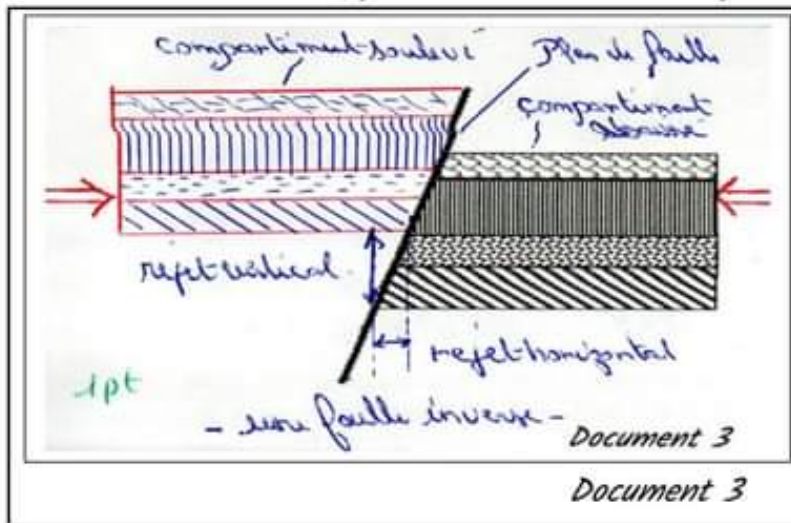 compartiment soulevé
Plan de faille
compartiment
rejet vertical
rejet horizontal
1pt
- une faille inverse -
Document 3
Document 3